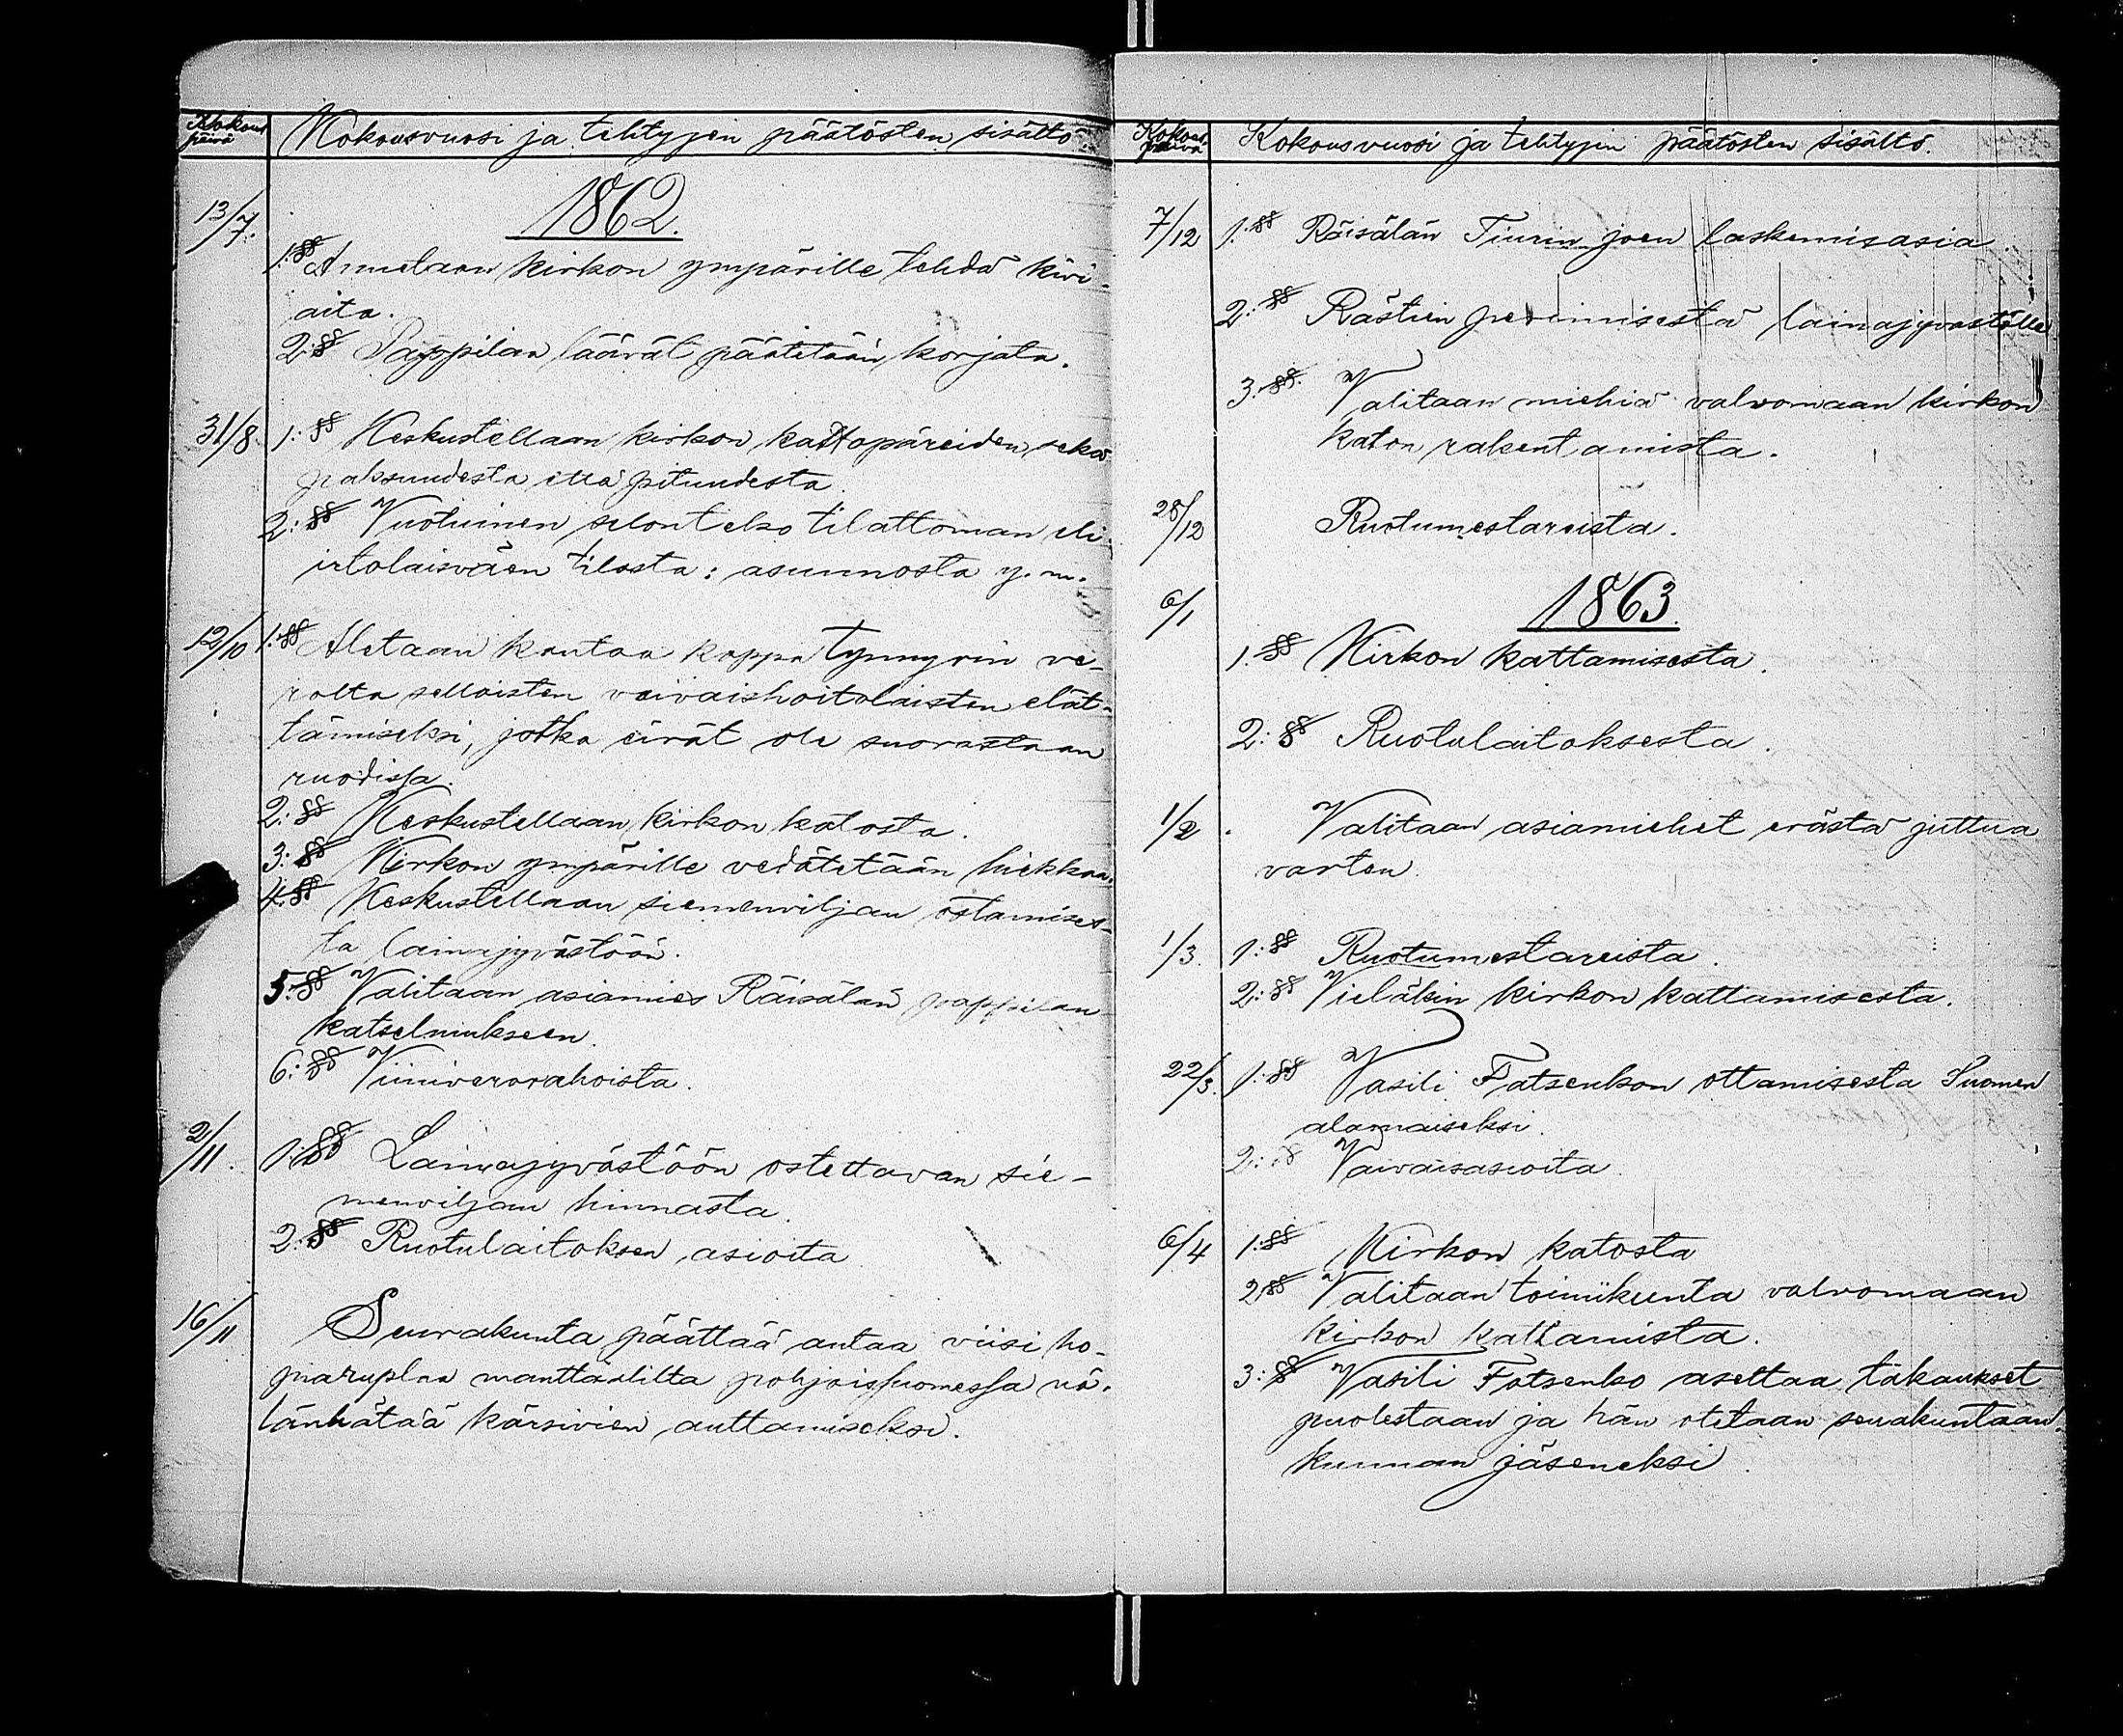 Kokous päivä
Kokousvuosi ja tehtyjen päätösten sisältö.
1862.
13/7.
1:§§ Annetaan kirkon ympärille tehdä kivi-
aita.
2:§§ Pappilan läävät päätetään korjata.
31/8. 1:§§ Keskustellaan kirkon kattopäreiden sekä
paksuudesta että pituudesta.
2:§§ Vuotuinen selonteko tilattoman eli
irtolaisväen tilasta: asunnosta y.m.
12/10 1:§§ Aletaan kantaa kappa tynnyrin ve-
rolta sellaisten vaivaishoitolaisten elät-
tämiseksi, jotka eivät ole suorastaan
ruodissa.
2:§§ Keskustellaan kirkon katosta.
3:§§ Kirkon ympärille vedätetään hiekkaa.
4:§§ Keskustellaan siemenviljan ostamises-
ta lainajyvästöön.
5:§§ Valitaan asiamies Räisälän pappilan
katselmukseen.
6:§§ Viiniverorahoista.
2/11. 1:§§ Lainajyvästöön ostettavan sie-
menviljan hinnasta.
2:§§ Ruotulaitoksen asioita
16/11 Seurakunta päättää antaa viisi ho-
pearuplaa manttaalilta pohjoissuomessa nä-
länhätää kärsivien auttamiseksi.
Kokous päivä
Kokousvuosi ja tehtyjen päätösten sisältö.
7/12 1:§§ Räisälän Tiurin joen laskemisasia.
2:§§ Rästien perimisestä lainajyvästölle
3:§§. Valitaan miehiä valvomaan kirkon
katon rakentamista.
28/12 Ruotumestareista.
6/1 1863.
1:§§ Kirkon kattamisesta.
2:§§ Ruotulaitoksesta.
1/2. Valitaan asiamiehet erästä juttua
varten.
1/3. 1:§§ Ruotumestareista.
2:§§ Vieläkin kirkon kattamisesta.
22/3. 1:§§ Vasili Fatsenkon ottamisesta Suomen
alamaiseksi.
2:§§ Vaivaisasioita.
6/4 1:§§ Kirkon katosta
2§§ Valitaan toimikunta valvomaan
kirkon kattamista.
3:§§ Vasili Fatsenko asettaa takaukset
puolestaan ja hän otetaan seurakuntaan
kunnan jäseneksi.